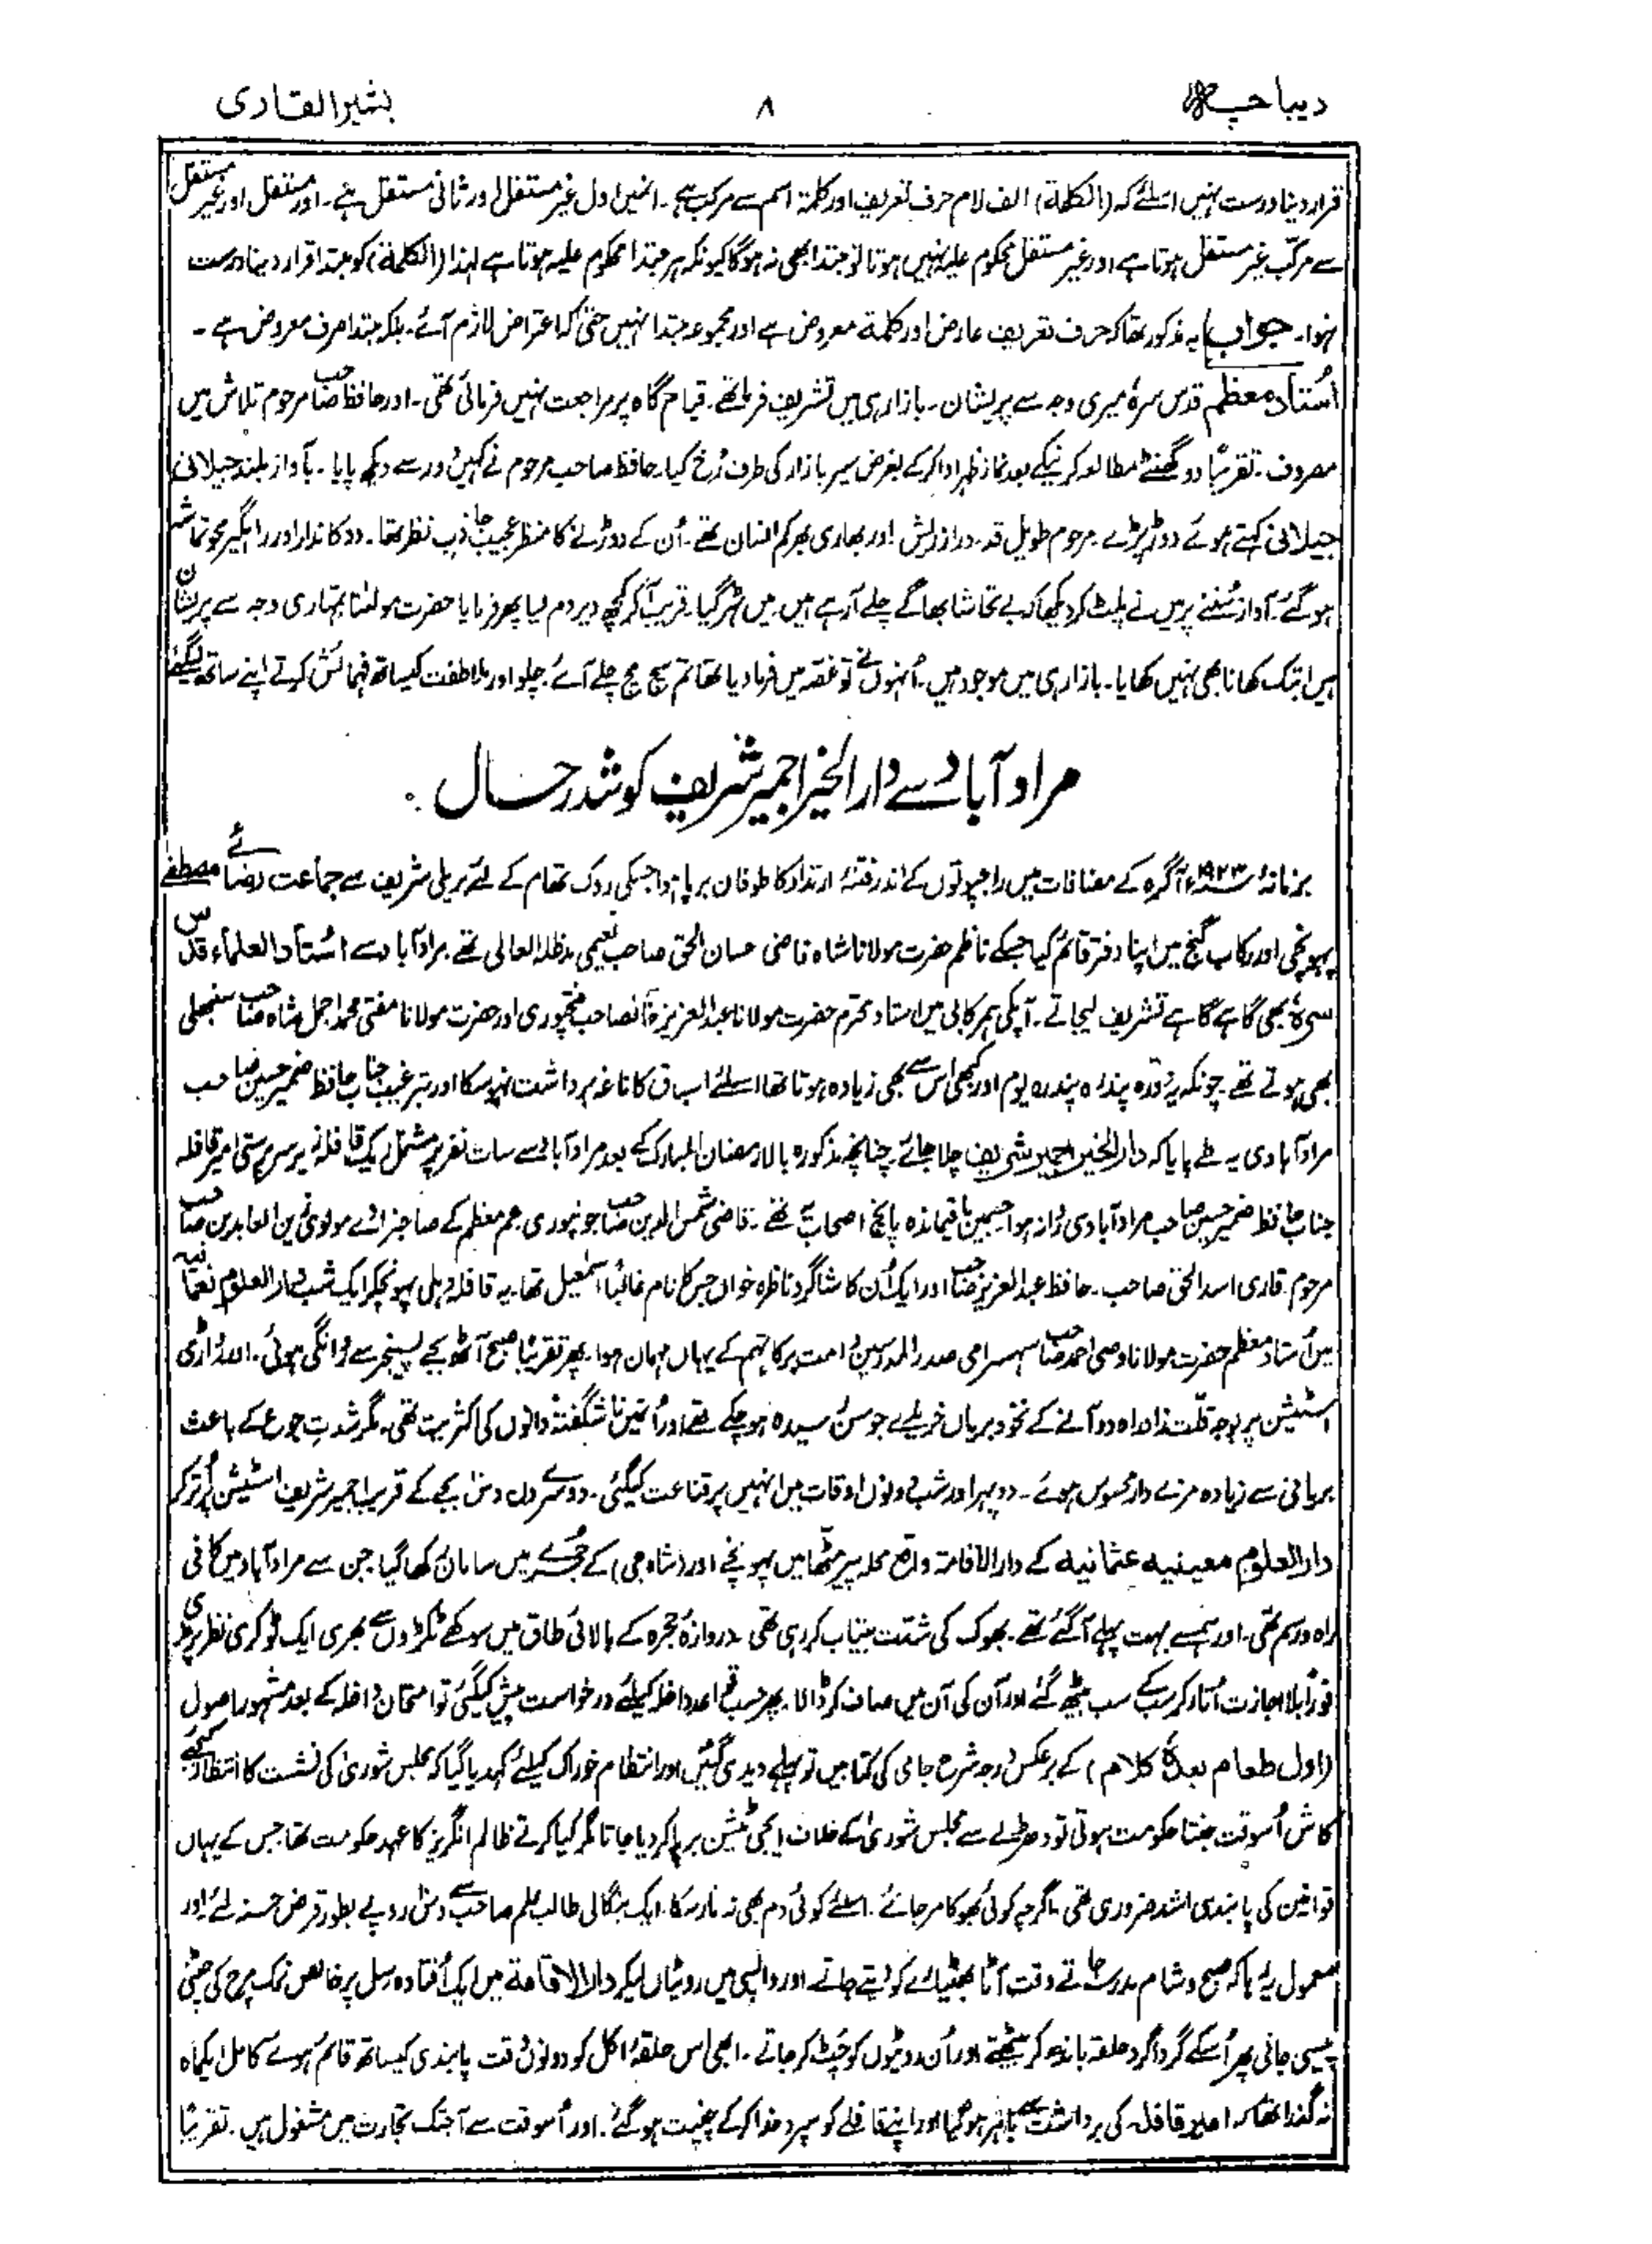 دیباچہ ۸ بشیر القاری
قرار دینا درست نہیں اسلئے کہ (الکلمۃ) الف لام حرف تعریف اور کلمۃ اسم سے مرکب ہے۔ انمیں اول غیر مستقل اور ثانی مستقل ہے۔ اور مستقل اور غیر مستقل
سے مرکّب غیر مستقل ہوتا ہے اور غیر مستقل محکوم علیہ نہیں ہوتا تو مبتدا بھی نہ ہوگا کیونکہ ہر مبتدا محکوم علیہ ہوتا ہے لہذا (الکلمۃ) کو مبتدا قرار دینا درست
نہوا۔ جواب یہ مذکور تھا کہ حرف تعریف عارض اور کلمۃ معروض ہے اور مجموعہ مبتدا نہیں حتیٰ کہ اعتراض لازم آئے۔ بلکہ مبتدا صرف معروض ہے۔
اُستاد معظم قدس سرہٗ میری وجہ سے پریشان۔ بازار ہی میں تشریف فرما تھے۔ قیام گاہ پر مراجعت نہیں فرمائی تھی۔ اور حافظ صاحب مرحوم تلاش میں
مصروف۔ تقریباً دو گھنٹے مطالعہ کرنیکے بعد نماز ظہر ادا کرکے بغرض سیر بازار کی طرف رُخ کیا۔ حافظ صاحب مرحوم نے کہیں دور سے دیکھ پایا۔ بآواز بلند جیلانی
جیلانی کہتے ہوئے دوڑ پڑے۔ مرحوم طویل قد۔ دراز ریش اور بھاری بھرکم انسان تھے۔ اُن کے دوڑنے کا منظر عجیب جاذب نظر تھا۔ دوکاندار اور راہگیر محو تماشہ
ہوگئے۔ آواز سُننے پر میں نے پلٹ کر دیکھا کہ بے تحاشا بھاگے چلے آرہے ہیں۔ میں ٹہر گیا۔ قریب آکر کچھ دیر دم لیا پھر فرمایا حضرت مولٰنا تمہاری وجہ سے پریشان
ہیں ابتک کھانا بھی نہیں کھایا۔ بازار ہی میں موجود ہیں۔ اُنہوں نے تو غصّہ میں فرمادیا تھا تم سچ مچ چلے آئے۔ چلو اور ملاطفت کیساتھ فہمائش کرتے اپنے ساتھ لیگئے
مراد آباد سے دار الخیر اجمیر شریف کو شد رحال
بزمانۂ ۱۹۲۳ء آگرہ کے مضافات میں راجپوتوں کے اندر فتنۂ ارتداد کا طوفان برپا ہوا جسکی روک تھام کے لئے بریلی شریف سے جماعت رضائے مصطفےٰ
پہونچی اور رکاب گنج میں اپنا دفتر قائم کیا جسکے ناظم حضرت مولانا شاہ قاضی حسان الحق صاحب نعیمی مدظلہ العالی تھے۔ مراد آباد سے استاذ العلماء قدس
سرہٗ بھی گاہے گاہے تشریف لیجاتے۔ آپکی ہمرکابی میں استاد محترم حضرت مولانا عبدالعزیز خانصاحب فتحپوری اور حضرت مولانا مفتی محمد اجمل شاہ صاحب سنبھلی
بھی ہوتے تھے۔ چونکہ یہ دورہ پندرہ پندرہ یوم اور کبھی اس سے بھی زیادہ ہوتا تھا اسلئے اسباق کا ناغہ برداشت نہو سکا اور بترغیب جناب حافظ ضمیر حسین صاحب
مرادآبادی یہ طے پایا کہ دار الخیر اجمیر شریف چلا جائے۔ چنانچہ مذکورہ بالا رمضان المبارک کے بعد مرادآباد سے سات نفر پر مشتمل ایک قافلہ زیر سرپرستی امیر قافلہ
جناب حافظ ضمیر حسین صاحب مرادآبادی روانہ ہوا جسمیں باقیماندہ پانچ اصحاب یہ تھے۔ قاضی شمس الدین صاحب جونپوری۔ عم معظم کے صاحبزادے مولوی زین العابدین صاحب
مرحوم۔ قاری اسد الحق صاحب۔ حافظ عبدالعزیز صاحب اور ایک اُن کا شاگرد ناظرہ خواں جس کا نام غالباً اسمٰعیل تھا۔ یہ قافلہ دہلی پہونچکر ایک شب دار العلوم نعمانیہ
میں اُستاد معظم حضرت مولانا وصی احمد صاحب سہسرامی صدر المدرسین دامت برکاتہم کے یہاں مہمان ہوا۔ پھر تقریباً صبح آٹھ بجے پسینجر سے روانگی ہوئی۔
اسٹیشن پر بوجہ قلّت زاد راہ دو آنے کے نخود بریاں خریدے جو سن رسیدہ ہوچکے تھے اور اُنمیں ناشگفتہ دانوں کی اکثریت تھی۔ مگر شدتِ جوع کے باعث
بریانی سے زیادہ مزے دار محسوس ہوئے۔ دوپہر اور شب دونوں اوقات میں انہیں پر قناعت کیگئی۔ دوسرے دن دس بجے کے قریب اجمیر شریف اسٹیشن پر اُتر کر
دار العلوم معینیہ عثمانیہ کے دار الاقامۃ واقع محلہ پیر مٹھا میں پہونچے اور (شاہ جی) کے حُجرے میں سامان رکھا گیا۔ جن سے مرادآباد میں کافی
راہ و رسم تھی۔ اور ہمسے بہت پہلے آگئے تھے۔ بھوک کی شدّت بیتاب کررہی تھی۔ دروازۂ حجرہ کے بالائی طاق میں سوکھے ٹکڑوں سے بھری ایک ٹوکری نظر پڑی
فوراً بلا اجازت اُتار کر سب کے سب بیٹھ گئے اور آن کی آن میں صاف کر ڈالا۔ پھر حسب قواعد داخلہ کیلئے درخواست پیش کیگئی تو امتحان داخلہ کے بعد مشہور اصول
(اول طعام بعدہٗ کلام) کے برعکس درجہ شرح جامی کی کتابیں تو پہلے دیدی گئیں اور انتظام خوراک کیلئے کہدیا گیا کہ مجلس شوریٰ کی نشست کا انتظار کیجئے
کاش اُسوقت جنتا حکومت ہوتی تو دھڑلے سے مجلس شوریٰ کے خلاف ایجی ٹیشن برپا کردیا جاتا مگر کیا کرتے ظالم انگریز کا عہد حکومت تھا جس کے یہاں
قوانین کی پابندی اشد ضروری تھی۔ اگرچہ کوئی بھوکا مرجائے۔ اسلئے کوئی دم بھی نہ مار سکا۔ ایک بنگالی طالب علم صاحب سے دس روپے بطور قرض حسنہ لئے اور
معمول یہ رہا کہ صبح و شام مدرسہ جاتے وقت آٹا بھٹیارے کو دیتے جاتے اور واپسی میں روٹیاں لیکر دار الاقامۃ میں ایک اُفتادہ سِل پر خالص نمک مرچ کی چٹنی
پیسی جاتی پھر اُسکے گرداگرد حلقہ باندھ کر بیٹھتے اور اُن روٹیوں کو چَٹ کر جاتے۔ ابھی اس حلقۂ اکل کو دونوں وقت پابندی کیساتھ قائم ہوئے کامل ایکماہ
نہ گذرا تھا کہ امیر قافلہ کی برداشت سے باہر ہوگیا اور اپنے قافلے کو سپرد خدا کرکے چمپت ہوگئے۔ اور اُسوقت سے آجتک تجارت میں مشغول ہیں۔ تقریباً